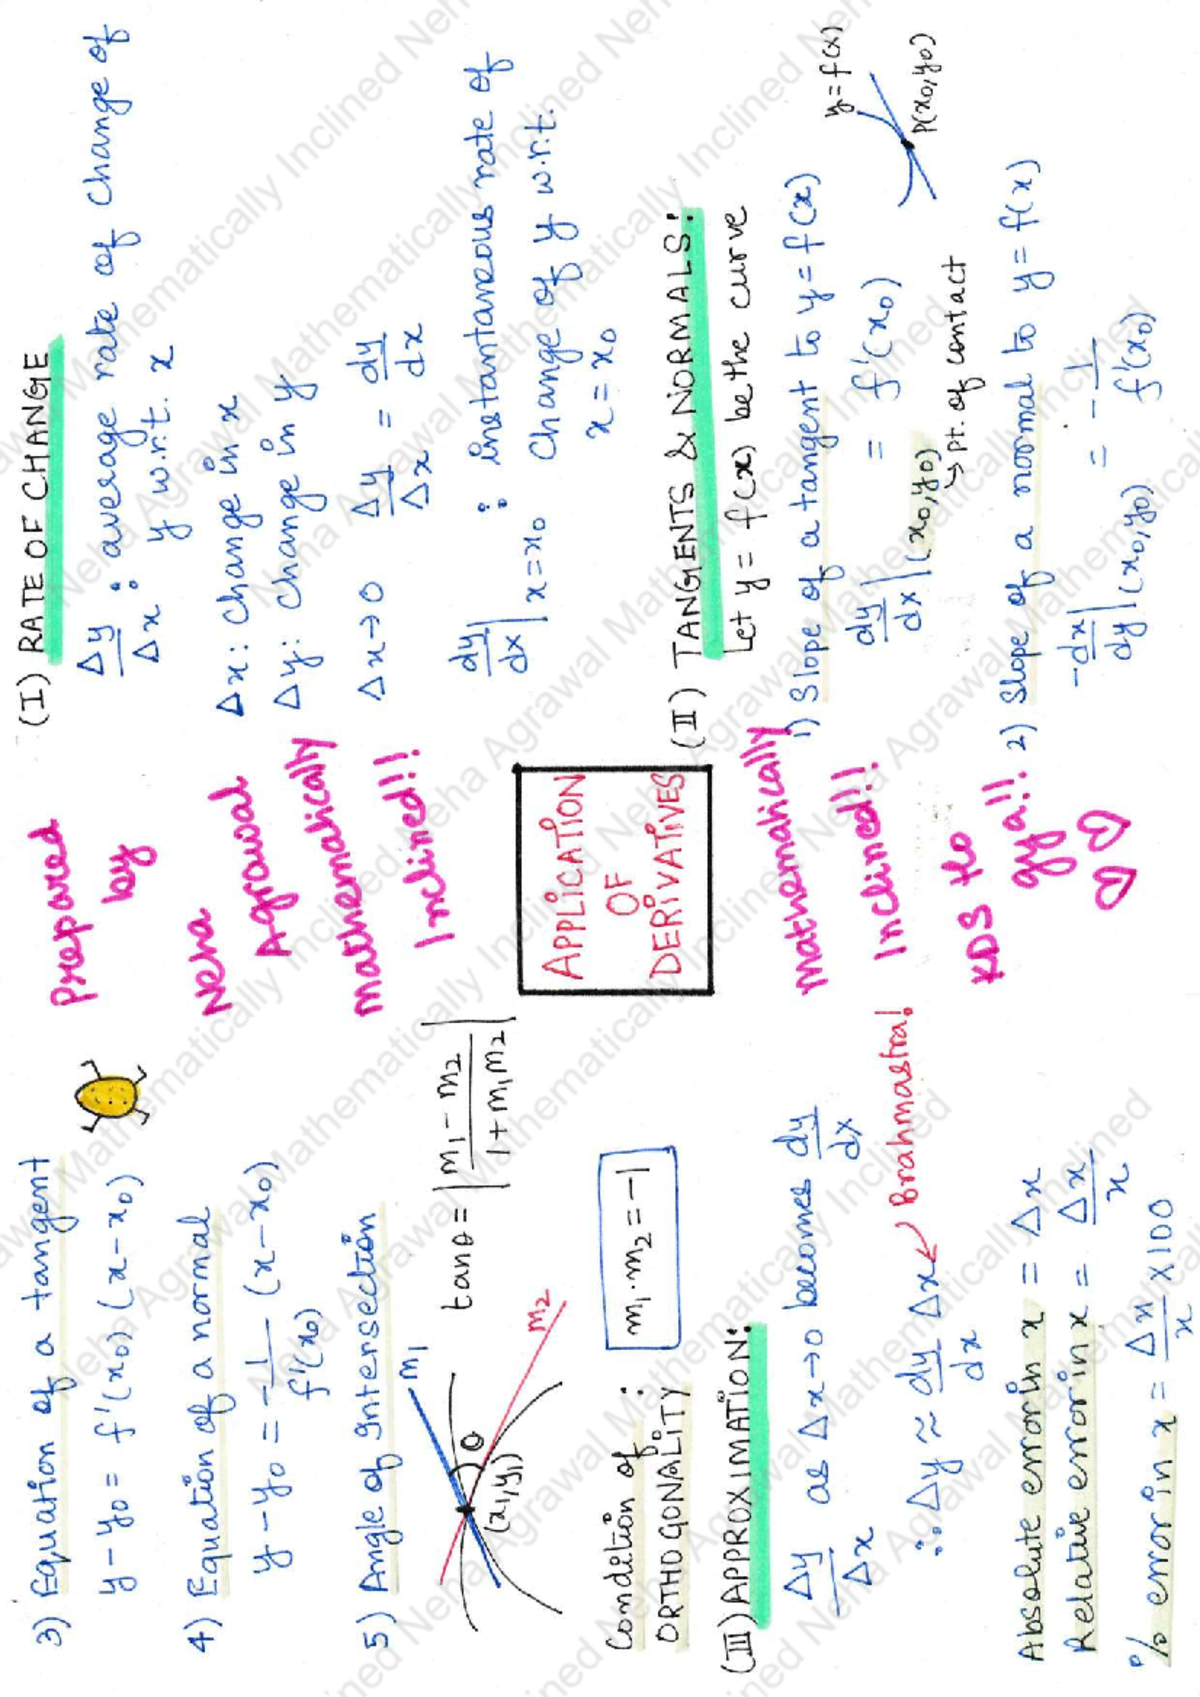 (I) RATE OF CHANGE
Δy/Δx : average rate of change of
y w.r.t. x
Δx : change in x
Δy : change in y
Δx→0 Δy/Δx = dy/dx
dy/dx| x=x₀ : instantaneous rate of
change of y w.r.t.
x = x₀
(II) TANGENTS & NORMALS:
Let y = f(x) be the curve
1) Slope of a tangent to y = f(x)
dy/dx|(x₀,y₀) = f'(x₀)
↳ pt. of contact
y = f(x)
P(x₀,y₀)
2) Slope of a normal to y = f(x)
-dx/dy|(x₀,y₀) = -1/f'(x₀)
Prepared
by
Neha
Agrawal
Mathematically
Inclined!!
APPLICATION
OF
DERIVATIVES
Mathematically
Inclined!!
KDS tho
gya!!
3) Equation of a tangent
y - y₀ = f'(x₀) (x - x₀)
4) Equation of a normal
y - y₀ = -1/f'(x₀) (x - x₀)
5) Angle of Intersection
m₁
θ
m₂
(x₁,y₁)
tanθ = |m₁ - m₂ / 1 + m₁m₂|
Condition of :
ORTHOGONALITY
m₁.m₂ = -1
(III) APPROXIMATION:
Δy/Δx as Δx→0 becomes dy/dx
∴ Δy ≈ dy/dx Δx ↙ Brahmastra!
Absolute error in x = Δx
Relative error in x = Δx/x
% error in x = Δx/x ×100
Neha Agrawal Mathematically Inclined